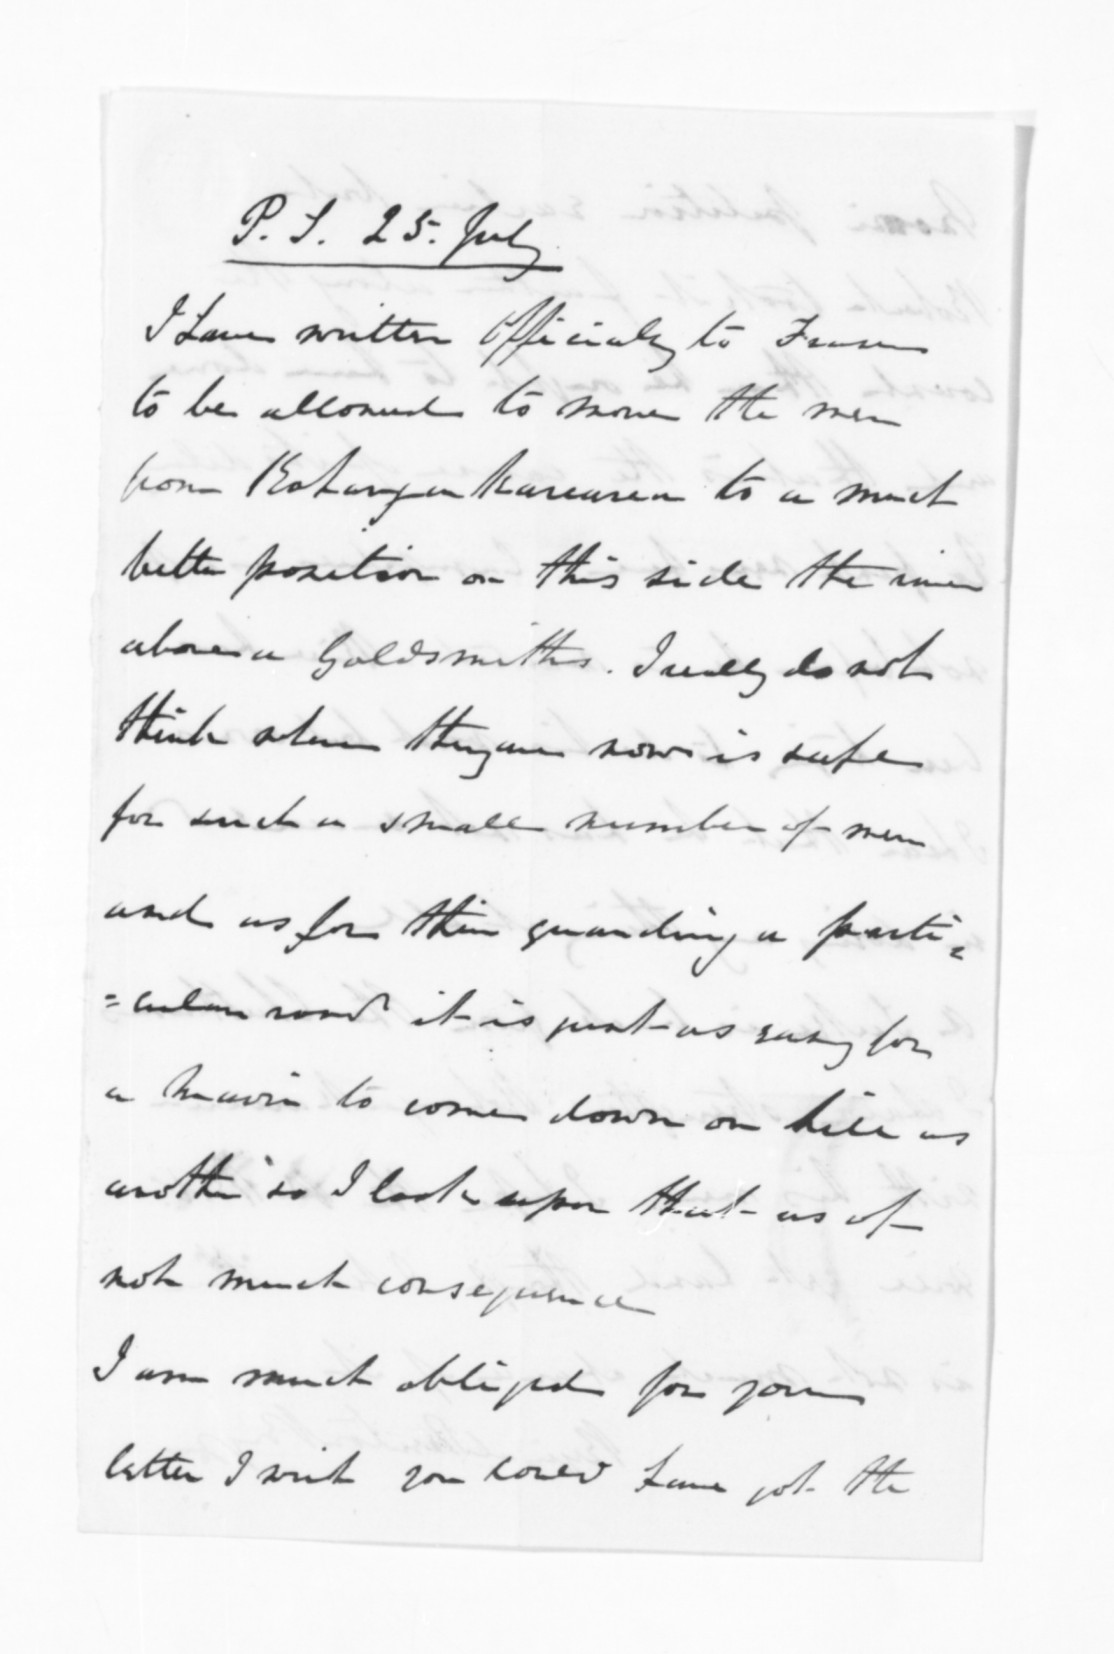 P.S. 25. July
I have written Officially to Fraser
to be allowed to move the men
from Kohanga Kareaerea to a much
better position on this side the river
above a Goldsmiths. I really do not
think where they are now is safe
for such a small number of men
and as for their guarding a parti=
=cular road it is just as easy for
a Maori to come down one hill as
another so I look upon that as of
not much consequence
I am much obliged for your
letter I wish you could have got the